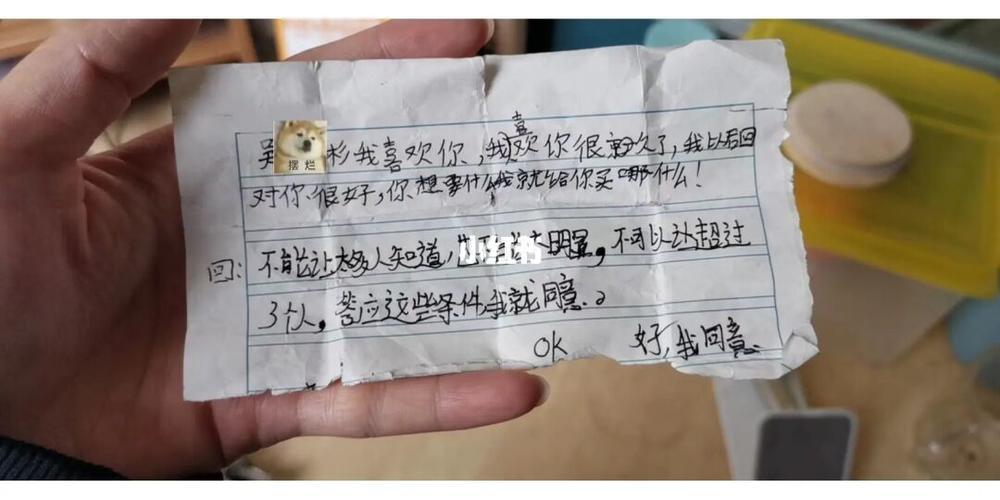 吴 彬我喜欢你,我喜欢你很久了,我以后回
对你很好,你想要什么我就给你买哪什么!
摆烂
回:不能让太多人知道,也不能太明显,不可以让超过
3个人,答应这些条件,我就同意。
OK 好,我同意
小红书